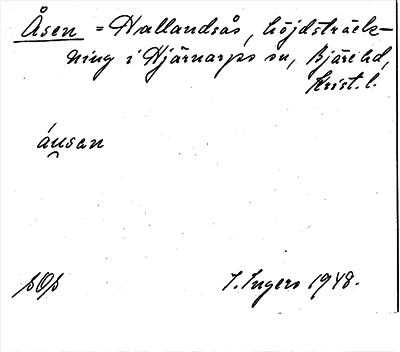 Åsen = Hallandsås, höjdsträck-
ning i Hjärnarps sn, Bjäre hd,
Krist. l.
áu̯san
sOs
I. Ingers 1948.